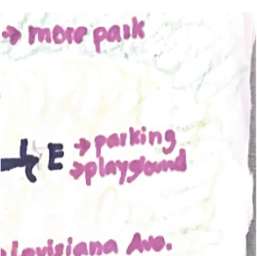 → more park
E → parking
→ playground
Louisiana Ave.